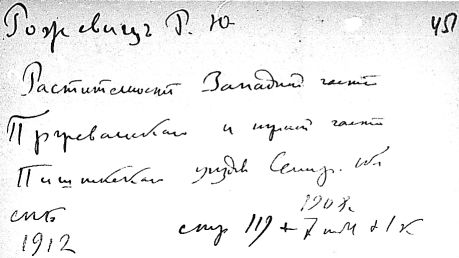 Рожевицъ Р. Ю. 451
Растительност Западной части
Пржевальскаго и южной части
Пишпекскаго уезда Семир. обл
1908г.
спб стр 119 + 7 илл + 1 к
1912